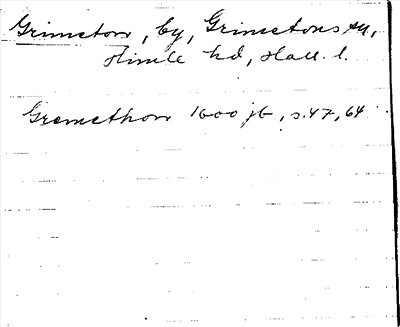 Grimeton, by, Grimetons sn,
Himle hd, Hall. l.
Gremethon 1600 jb, s. 47, 64